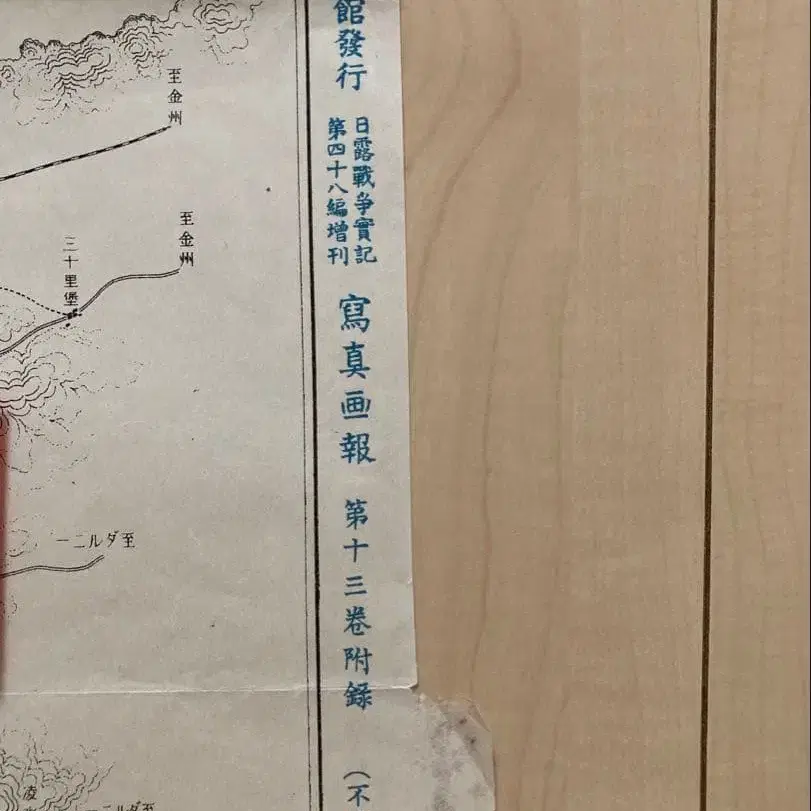 館發行
日露戰争實記
第四十八編增刊
寫真画報
第十三卷附錄
(不
至金州
至金州
三十里堡
至ダルニー
至ダルニー
凌